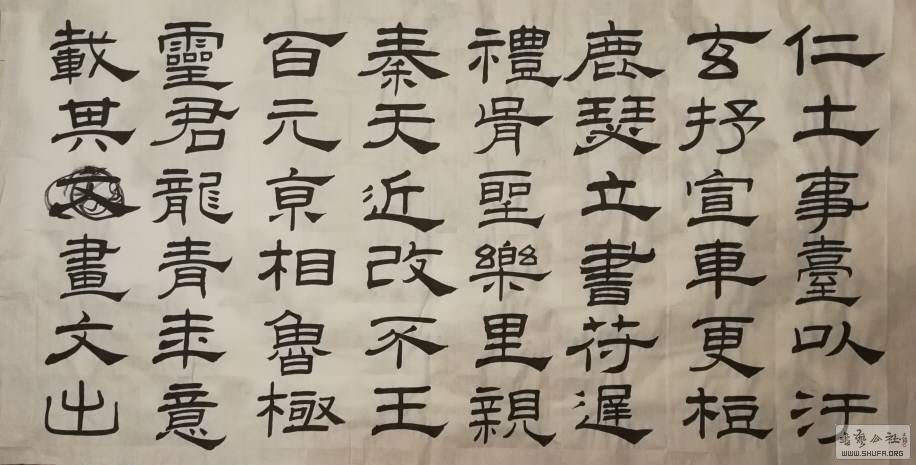 仁土事臺以汙
玄抒宣車更桓
鹿瑟立書符遲
禮聖樂里親
秦天近改不王
百元京相魯極
靈君龍青年意
載其文畫文出
书艺公社
WWW.SHUFA.ORG